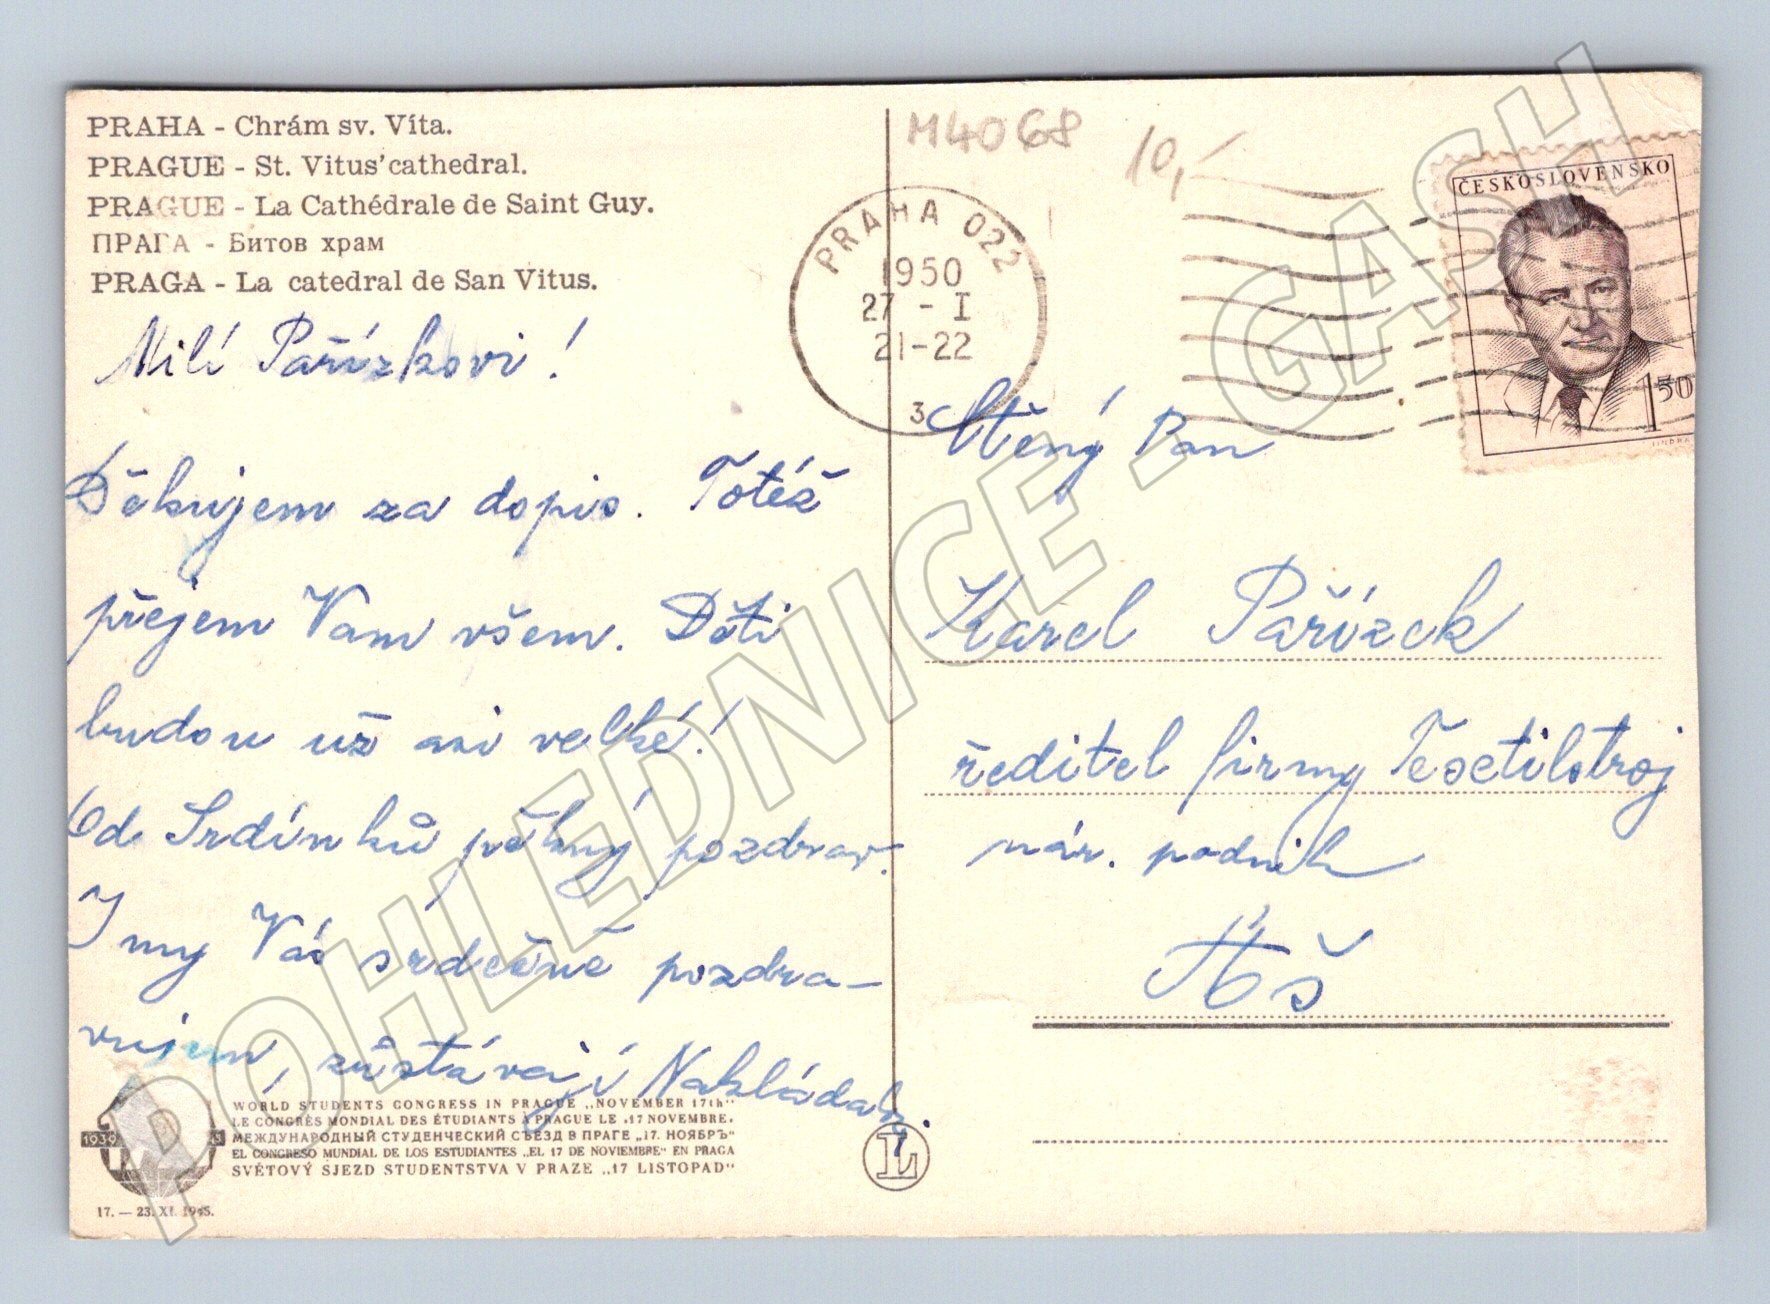 PRAHA - Chrám sv. Víta.
PRAGUE - St. Vitus' cathedral.
PRAGUE - La Cathédrale de Saint Guy.
ПРАГА - Битов храм
PRAGA - La catedral de San Vitus.
Milí Pařízkovi!
Děkujem za dopis. Totéž
přejem Vám všem. Děti
budou už asi velké!
Od Srdínků pěkný pozdrav.
I my Vás srdečně pozdra-
vujem, zůstávají Nakládalovi.
WORLD STUDENTS CONGRESS IN PRAGUE „NOVEMBER 17th"
LE CONGRÈS MONDIAL DES ÉTUDIANTS À PRAGUE LE „17 NOVEMBRE"
МЕЖДУНАРОДНЫЙ СТУДЕНЧЕСКИЙ СЪЕЗД В ПРАГЕ „17. НОЯБРЬ"
EL CONGRESO MUNDIAL DE LOS ESTUDIANTES „EL 17 DE NOVIEMBRE" EN PRAGA
SVĚTOVÝ SJEZD STUDENTSTVA V PRAZE „17 LISTOPAD"
1939
17. — 23. XI. 1945.
L
M4068
10,-
PRAHA 022
1950
27 - I
21-22
3
ČESKOSLOVENSKO
1 50
Ctěný Pan
Karel Pařízek
ředitel firmy Tesetilstroj
nár. podnik
Aš
POHLEDNICE - GASH